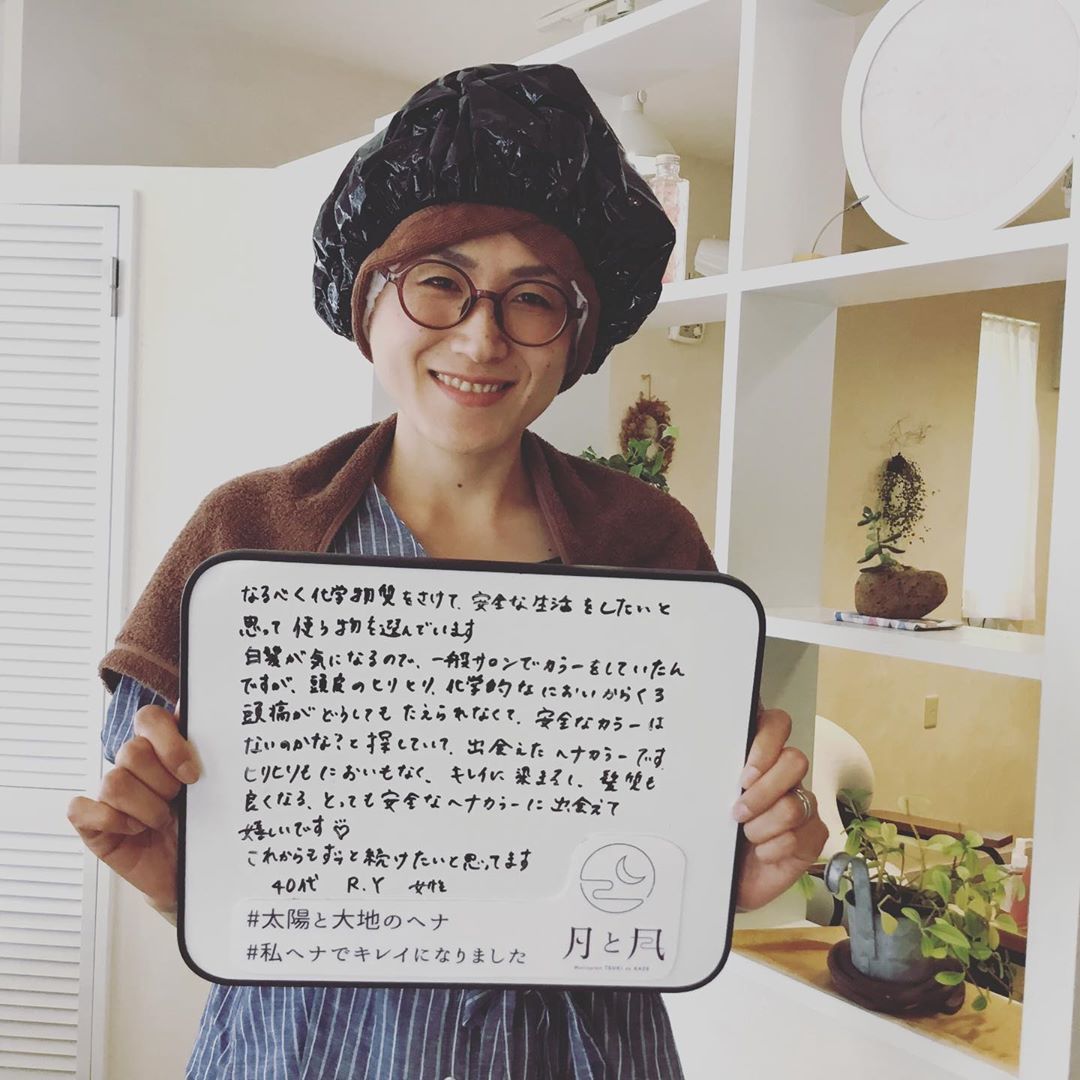 なるべく化学物質をさけて、安全な生活をしたいと
思って使う物を選んでいます
白髪が気になるので、一般サロンでカラーをしていたん
ですが、頭皮のヒリヒリ、化学的なにおいからくる
頭痛がどうしてもたえられなくて、安全なカラーは
ないのかな?と探していて、出会えたヘナカラーです
ヒリヒリもにおいもなく、キレイに染まるし、髪質も
良くなる、とっても安全なヘナカラーに出会えて
嬉しいです♡
これからもずっと続けたいと思ってます
40代 R.Y 女性
#太陽と大地のヘナ
#私ヘナでキレイになりました
月と風
TSUKI to KAZE